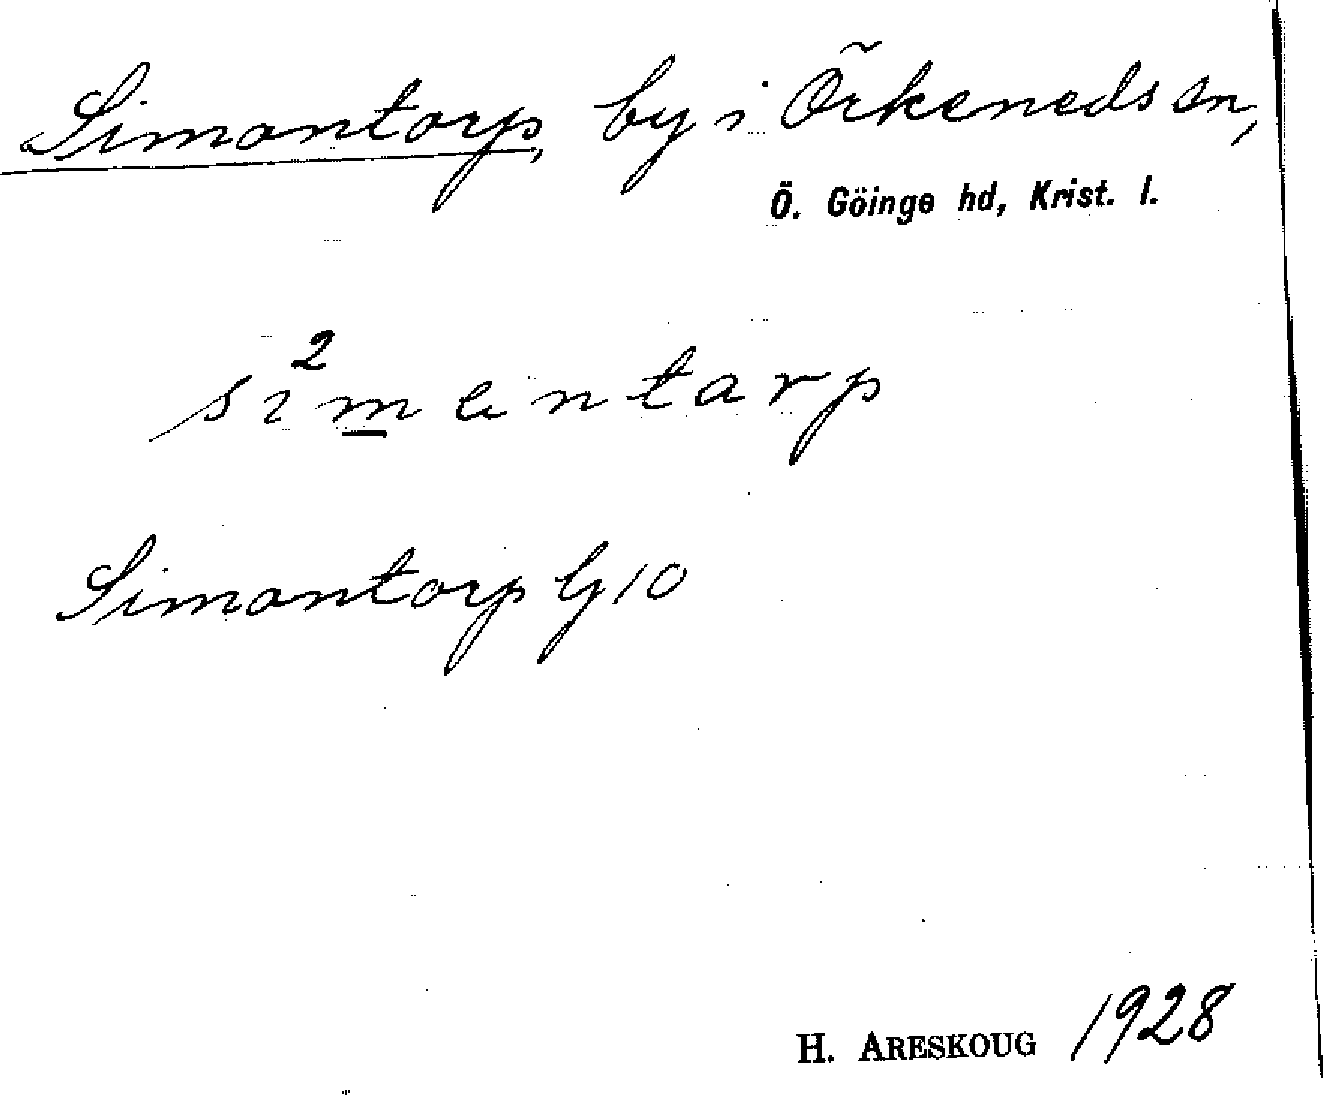 Simontorp, by i Örkeneds sn,
Ö. Göinge hd, Krist. l.
si²mentarp
Simontorp G10
H. ARESKOUG 1928